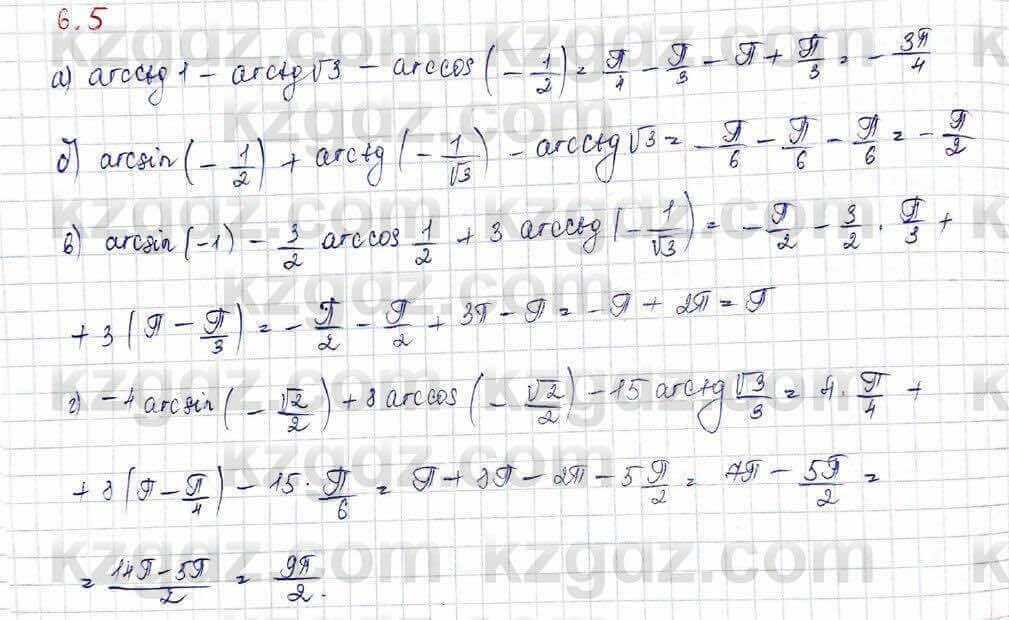 6.5
а) arcctg 1 - arctg √3 - arccos (- 1/2) = π/4 - π/3 - π + π/3 = - 3π/4
б) arcsin (- 1/2) + arctg (- 1/√3) - arcctg √3 = - π/6 - π/6 - π/6 = - π/2
в) arcsin (-1) - 3/2 arccos 1/2 + 3 arcctg (- 1/√3) = - π/2 - 3/2 · π/3 +
+ 3 (π - π/3) = - π/2 - π/2 + 3π - π = - π + 2π = π
г) -4 arcsin (- √2/2) + 8 arccos (- √2/2) - 15 arctg √3/3 = 4 · π/4 +
+ 8 (π - π/4) - 15 · π/6 = π + 8π - 2π - 5 π/2 = 7π - 5π/2 =
= 14π - 5π/2 = 9π/2.
kzgdz.com